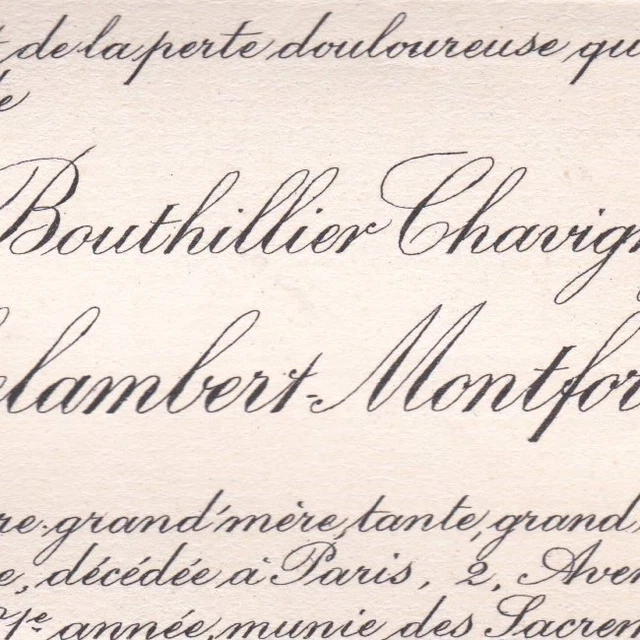 de la perte douloureuse qu
Bouthillier Chavig
lambert-Montfor
re, grand'mère, tante, grand
e, décédée à Paris, 2, Aven
1e année, munie des Sacrem